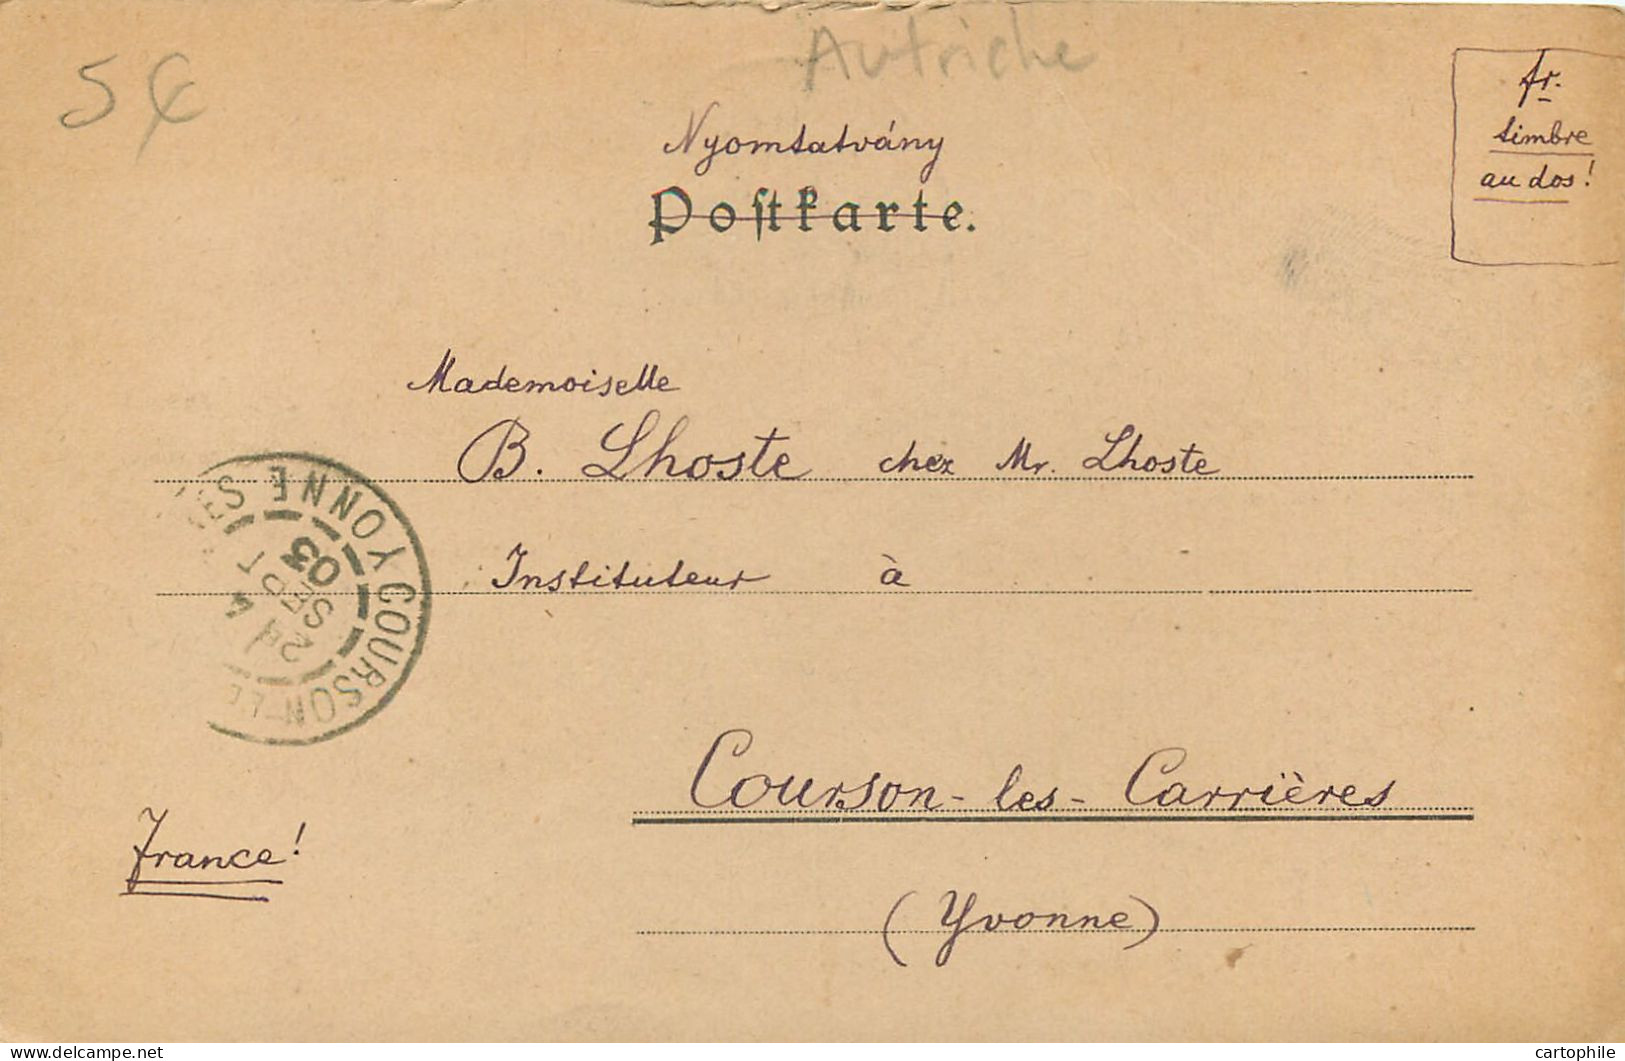 5 €
Autriche
fr.
timbre
au dos!
Nyomtatvány
Postkarte.
Mademoiselle
B. Lhoste chez Mr. Lhoste
Instituteur à
Courson-les-Carrières
(Yvonne)
France!
COURSON-LE
LES YONNE
2E
4
SEPT
03
www.delcampe.net
cartophile